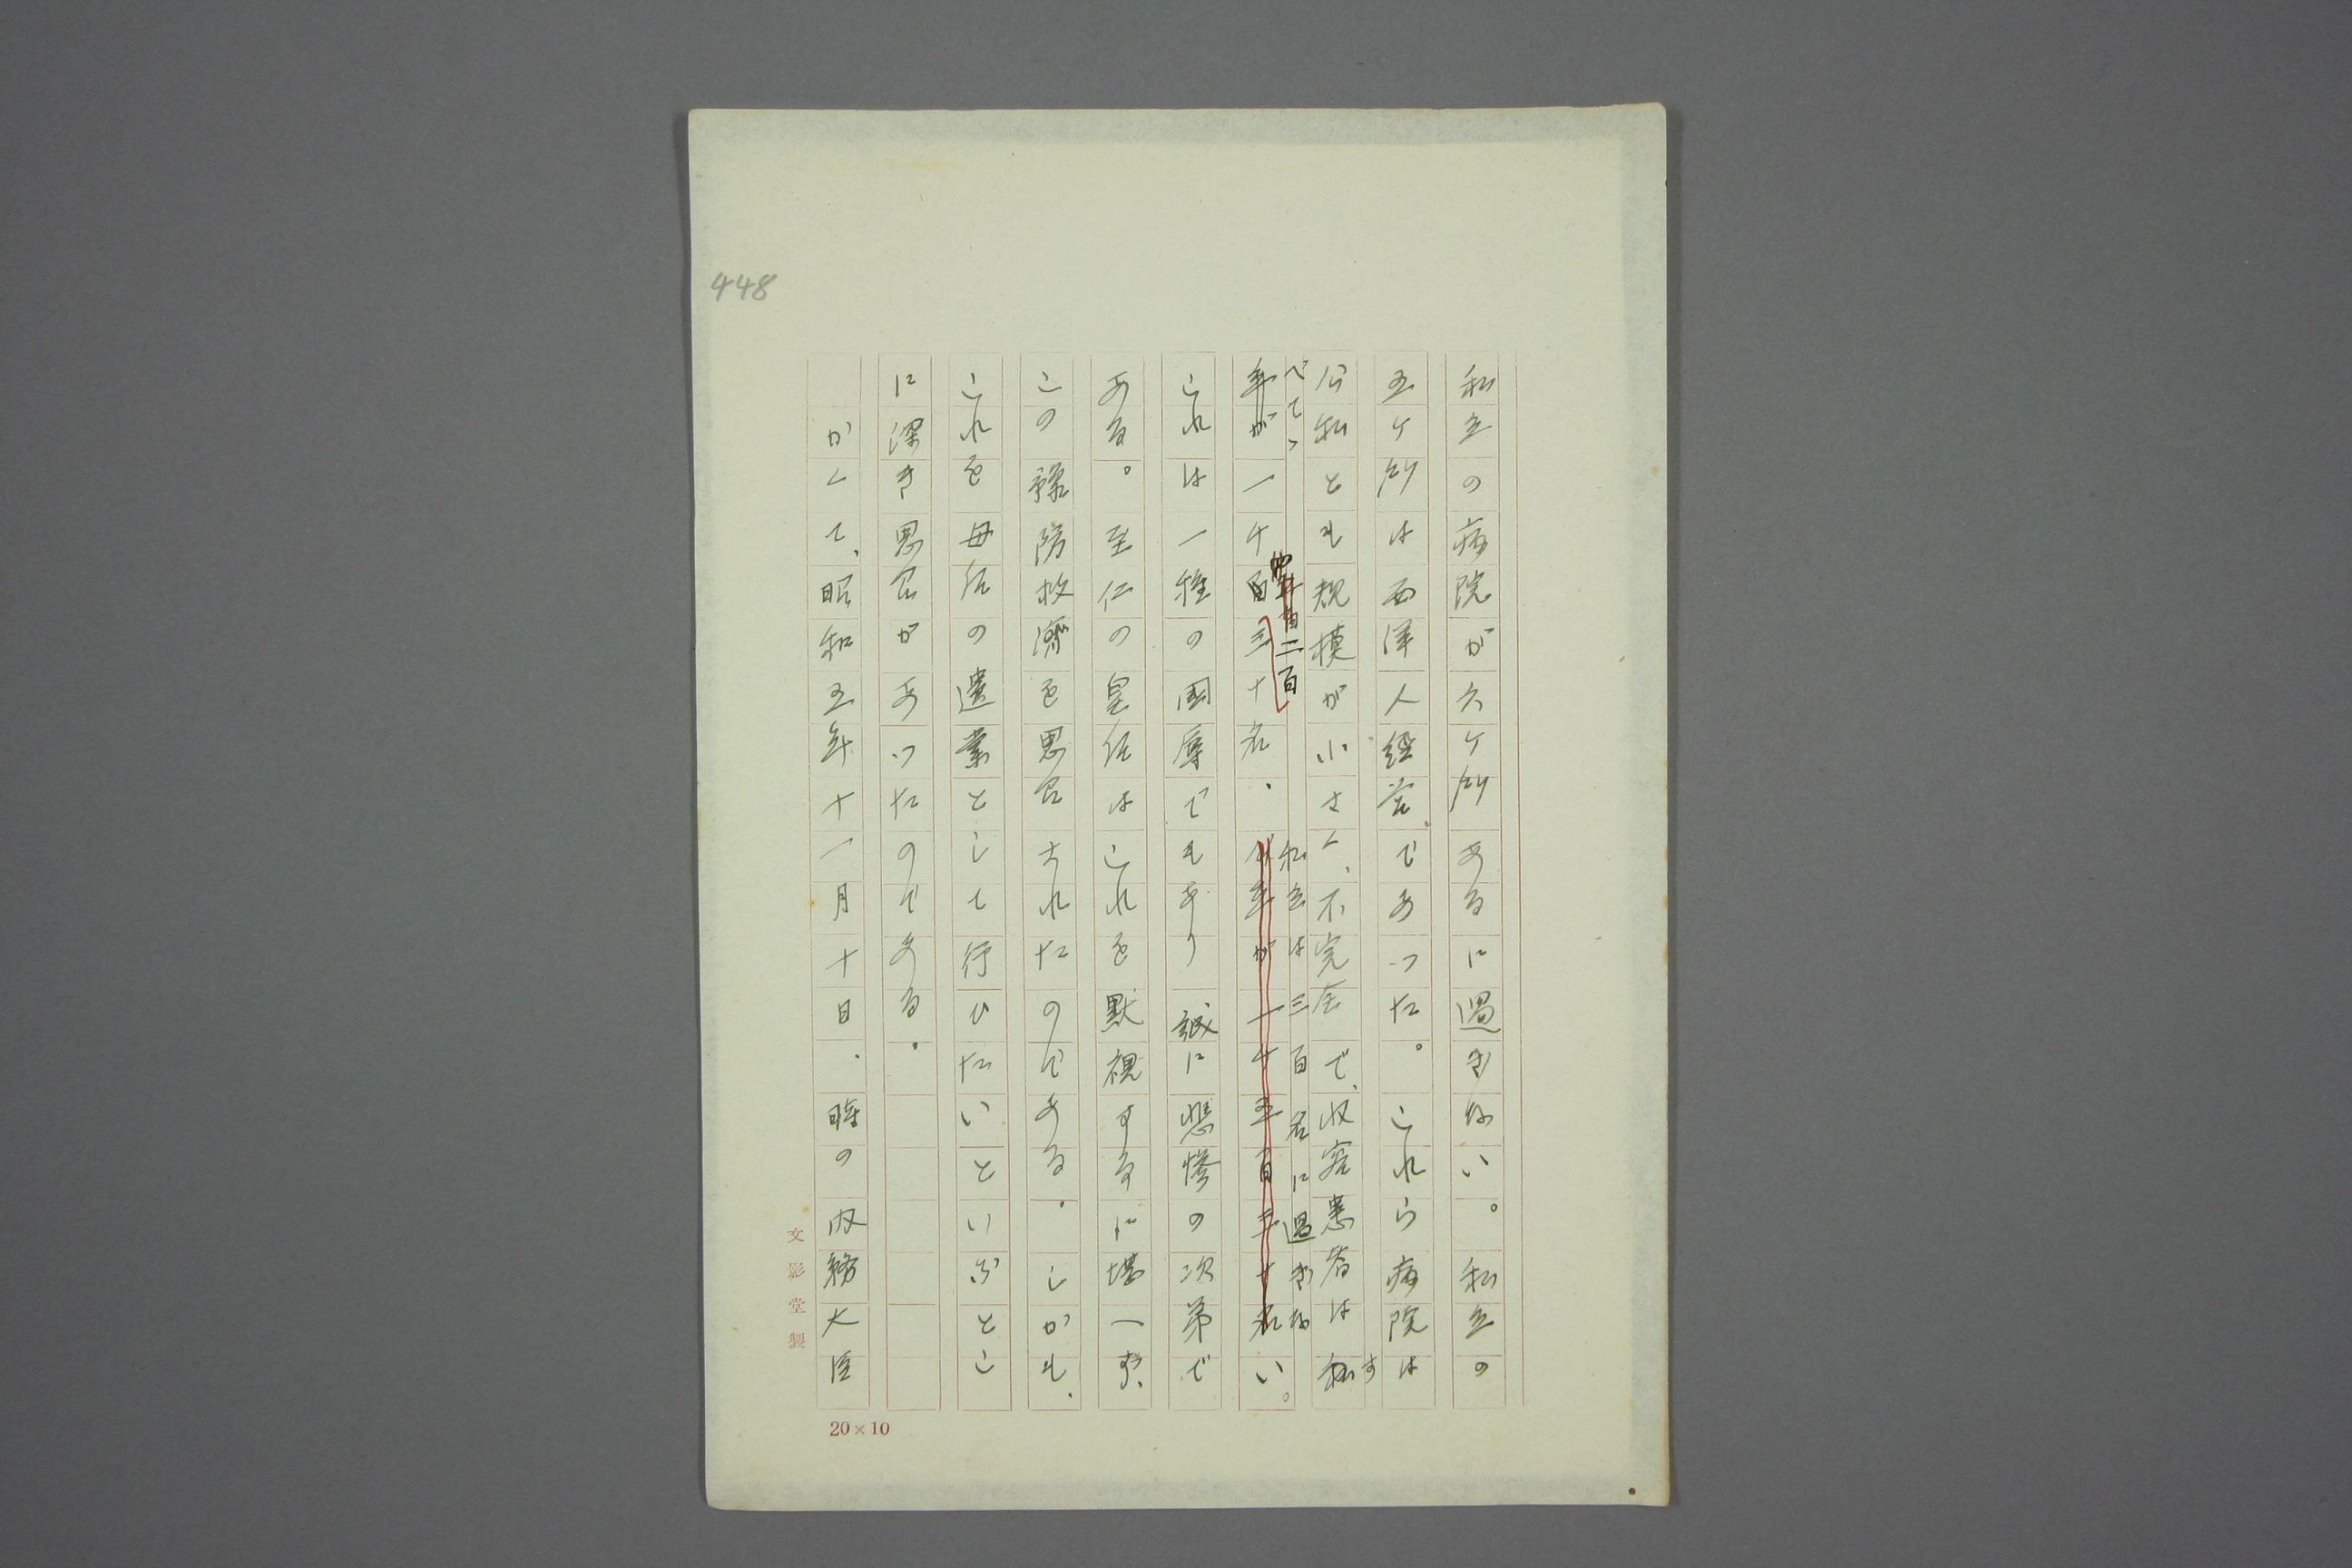 448
私立の病院が六ケ所あるに過ぎない。私立の
五ケ所は西洋人経営であつた。これら病院は
公私とも規模が小さく、不完全で、収容患者は す
べて、 二百 私立は三百名に過ぎな
一千 三十名、 い。
これは一種の国辱でもあり 誠に悲惨の次第で
ある。至仁の皇后はこれを黙視するに堪へず、
この豫防救濟を思召されたのである。しかも、
これを母后の遺業として行ひたいといふとこ
に深き思召があつたのである。
かくて、昭和五年十一月十日、時の内務大臣
文影堂製
20×10